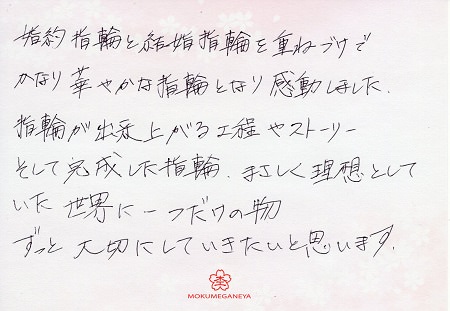 婚約指輪と結婚指輪を重ねづけで
かなり華やかな指輪となり感動しました.
指輪が出来上がる工程やストーリー
そして完成した指輪.まさしく理想として
いた世界に一つだけの物
ずっと大切にしていきたいと思います.
MOKUMEGANEYA